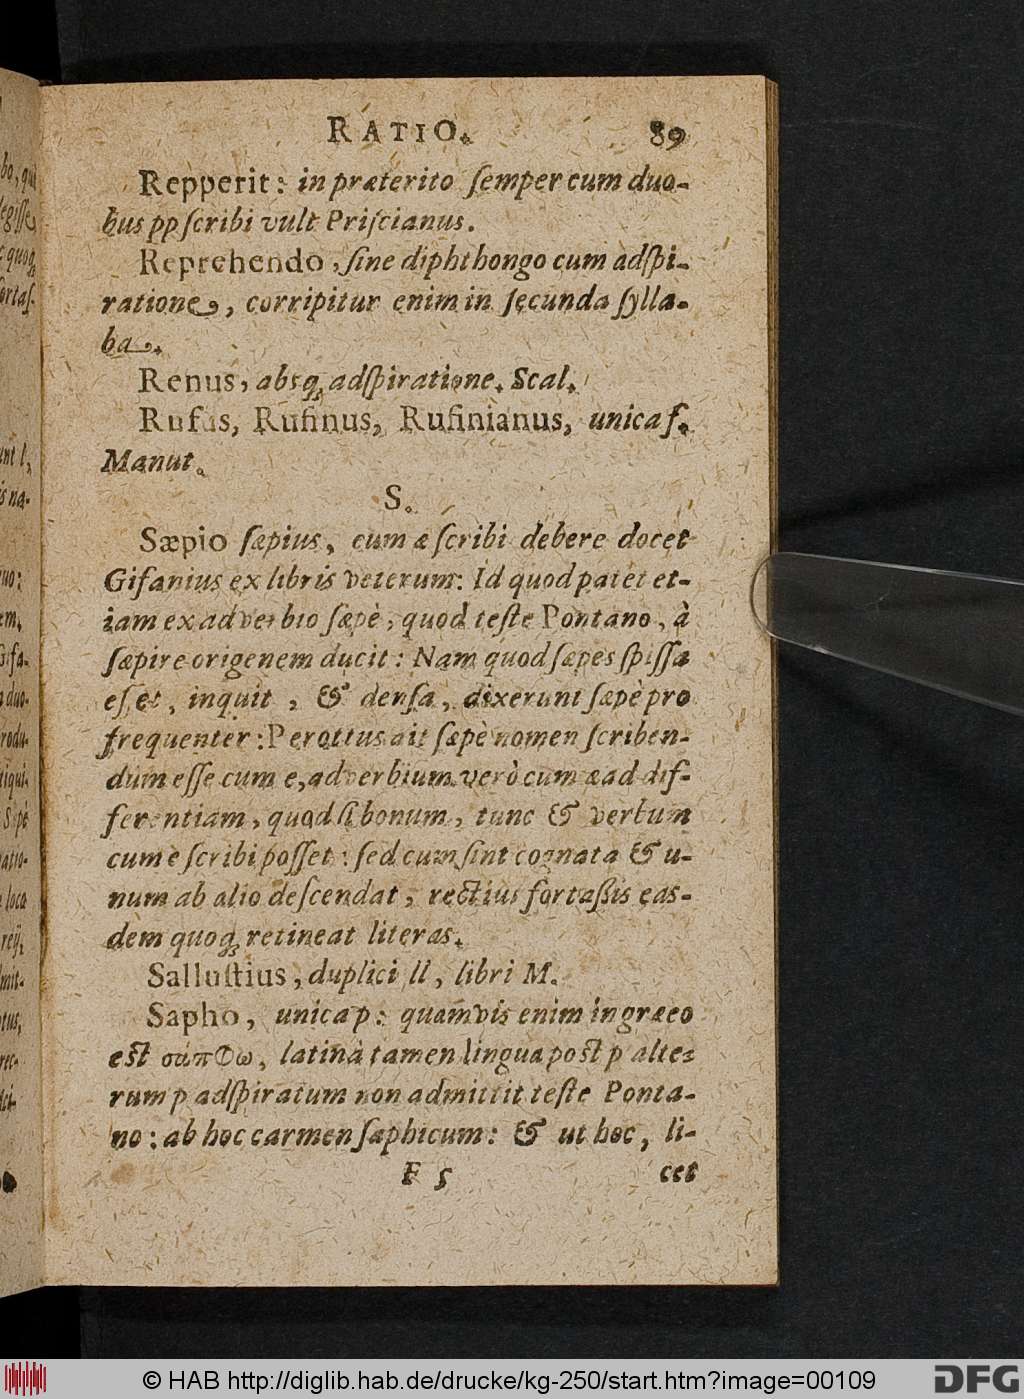 RATIO. 89
Repperit: in præterito ſemper cum duo-
bus pp ſcribi vult Priſcianus.
Reprehendo, ſine diphthongo cum adſpi-
ratione, corripitur enim in ſecunda ſylla-
ba.
Renus, absq; adſpiratione. Scal.
Rufus, Rufinus, Rufinianus, unica f.
Manut.
S.
Sæpio ſæpius, cum æ ſcribi debere docet
Gifanius ex libris veterum: Id quod patet et-
iam ex adverbio ſæpè, quod teſte Pontano, à
ſæpire origenem ducit: Nam quod ſæpes ſpiſſa
eſſet, inquit, & denſa, dixerunt ſæpè pro
frequenter: Perottus ait ſæpè nomen ſcriben-
dum eſſe cum e, adverbium verò cum æ ad dif-
ferentiam, quod ſi bonum, tunc & verbum
cum e ſcribi poſſet: ſed cum ſint cognata & u-
num ab alio deſcendat, rectius fortaßis eas-
dem quoq; retineat literas.
Salluſtius, duplici ll, libri M.
Sapho, unica p: quamvis enim in græco
eſt σάπΦω, latinà tamen lingua poſt p alte-
rum p adſpiratum non admittit teſte Ponta-
no: ab hoc carmen ſaphicum: & ut hoc, li-
F 5 cet
bo, qui
legiſſe,
quoq;
fortaſ-
unt l,
is na-
em,
Gifa-
duo-
rodu-
Sepè
loca
reij,
mit-
© HAB http://diglib.hab.de/drucke/kg-250/start.htm?image=00109
DFG